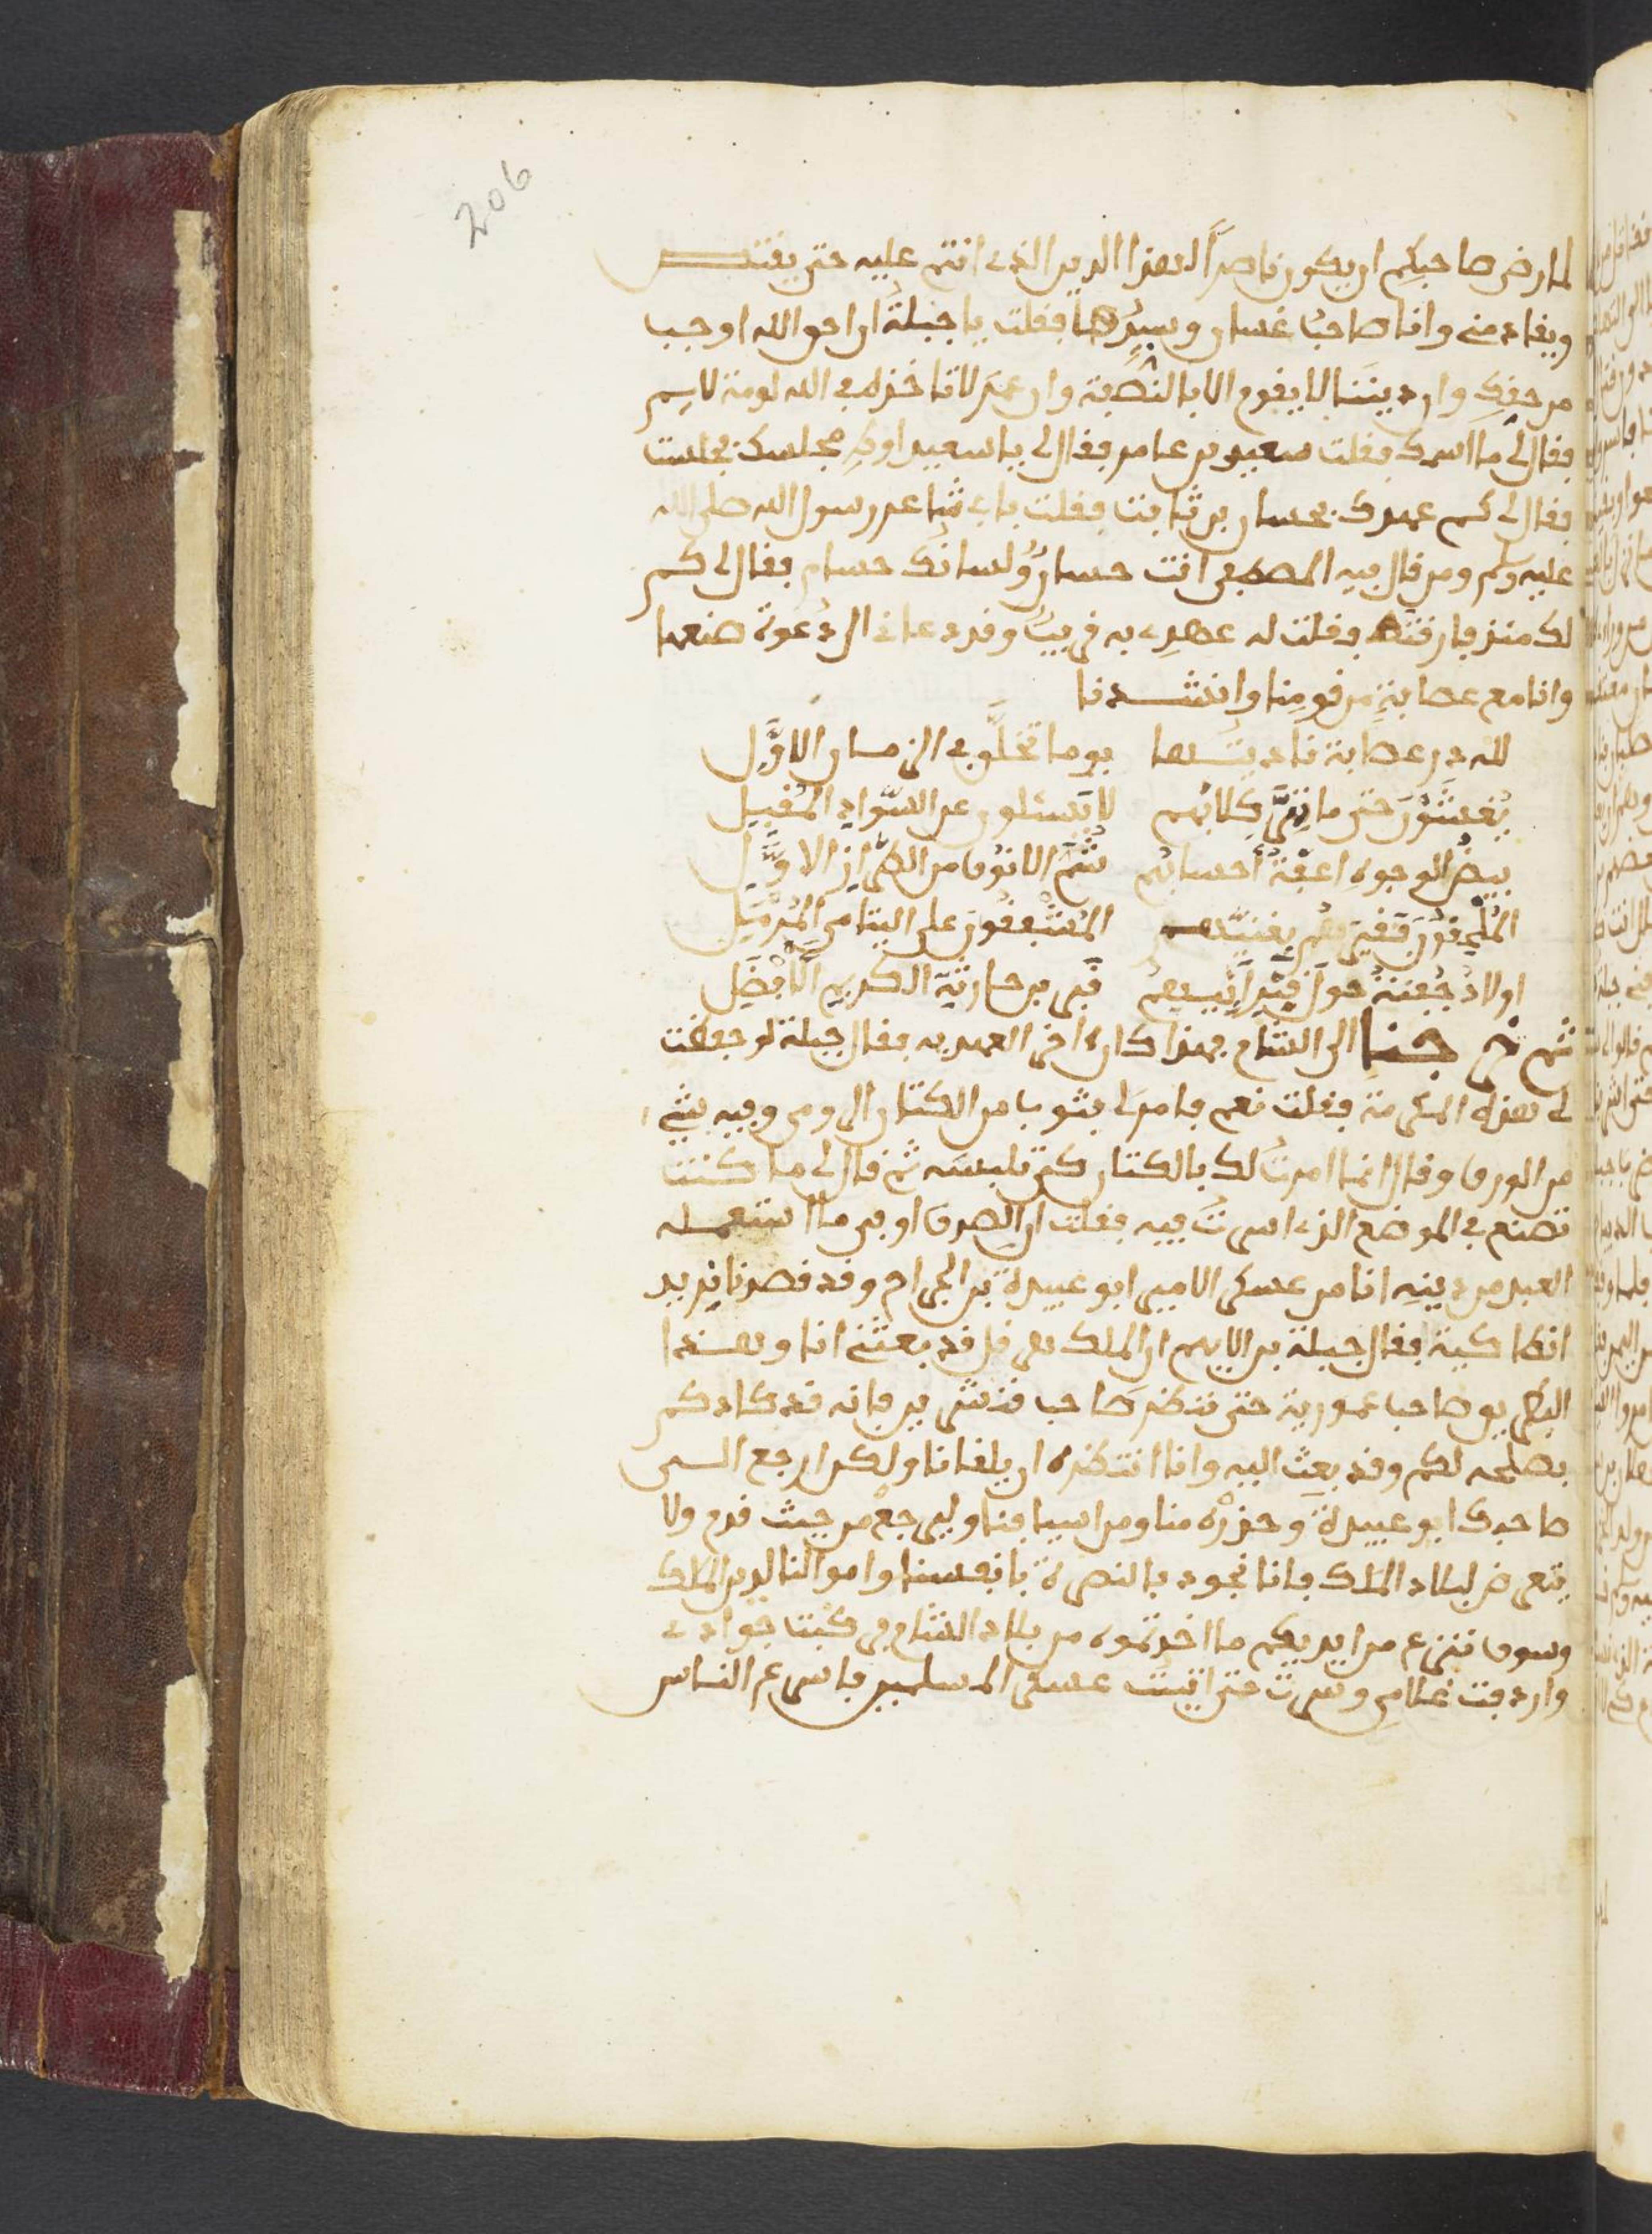 206
لما رضى صاحبكم ان يكون ناصرا لهذا الدين الذي انتم عليه حتى يقتص
ويقاد مني وانا صاحب غسان وسيدها فقلت يا جبلة ان احق الله اوجب
من حقك وان ديننا لا يقوم الا بالنصيحة وان عمر لا تاخذه في الله لومة لايم
فقال لي ما اسمك فقلت سعيد بن عامر فقال لي يا سعيد اوط مجلسك فجلست
فقال لي كم عهدك بحسان بن ثابت فقلت باي شاعر رسول الله صلى الله
عليه وسلم ومن قال فيه المصطفى انت حسان ولسانك حسام فقال لي كم
لك منذ فارقته فقلت له عهدي به قريب وقد دعانا الى دعوة صنعها
وانا مع عصابة من قومنا وانشدنا
لله در عصابة نادمتها يوما تخلق في الزمان الاول
يغشون حتى ما تهر كلابهم لا يسئلون عن السواد المقبل
بيض الوجوه اعفة احسابهم شم الانوف من الطراز الاول
الملحقون فقيرهم بغنيهم المشفقون على اليتامى المرمل
اولاد جفنة حول قبر ابيهم قبر بن حارثة الكريم الافضل
ثم خرجنا الى الشام فهذا كان اخر العهد به فقال جبلة لو حفظت
لي هذه المكرمة فقلت نعم فامر لي بثوب من الكتان الرومي وفيه شيء
من الورق وقال انما امرت لك بالكتان كي تلبسه ثم قال لي ما كنت
تصنع في الموضع الذي اسرت فيه فقلت ان الصدق اوفى ما استعمله
العبد من دينه انا من عسكر الامير ابو عبيدة بن الجراح وقد قصدنا نريد
انطاكية فقال جبلة بن الايهم ان الملك هرقل قد بعثني انا وهذا
البطريق صاحب عمورية حتى ننظر صاحب قنسرين فانه قد كادكم
بصلحه لكم وقد بعث اليه وانا انتظره ان يلقانا ولكن ارجع الى
صاحبك ابو عبيدة وحذره منا ومن اسيافنا وليرجع من حيث قدم ولا
يتعرض لبلاد الملك فانا نجود بالنصرة بانفسنا واموالنا لدين الملك
وسوف ننزع من ايديكم ما اخذتموه من بلاد الشام فركبت جوادي
واردفت غلامي وسرت حتى اتيت عسكر المسلمين فاسرع الناس